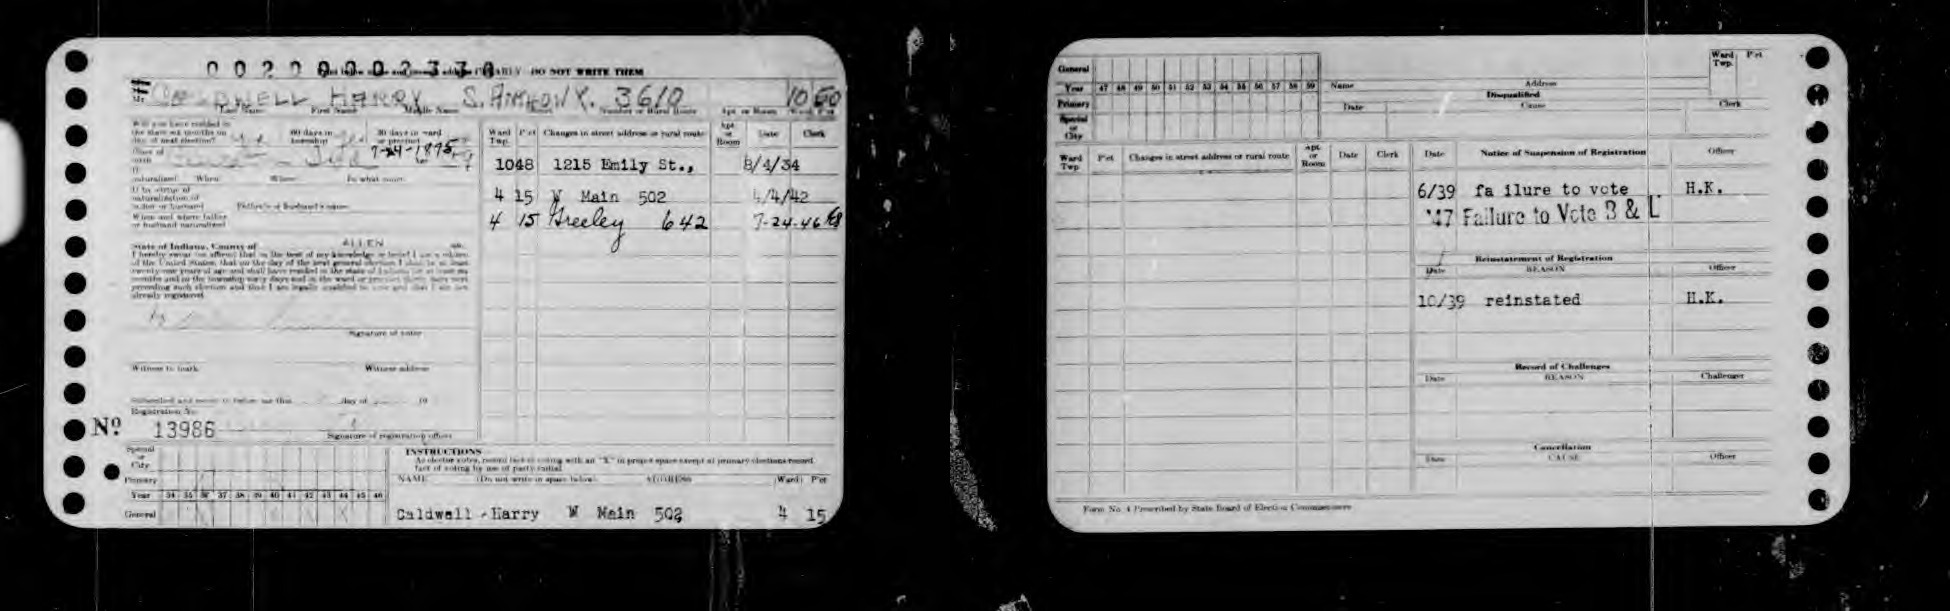 0 0 2 0 0 0 0 2 3 3 0
DO NOT WRITE THEM
Mr. CALDWELL HARRY S. ANTHONY. 3610 10 60
Last Name First Name Middle Name Number or Rural Route Apt. or Room Ward Pct
Will you have resided in
the state six months on 60 days in 30 days in ward
day of next election? township or precinct
7-24-1875
naturalized When Where In what court
If by virtue of
naturalization of
father or husband Father's or husband's name
When and where father
or husband naturalized
State of Indiana, County of ALLEN ss:
I hereby swear (or affirm) that to the best of my knowledge or belief I am a citizen
of the United States, that on the day of the next general election I shall be at least
twenty-one years of age and shall have resided in the state of Indiana for at least six
months and in the township sixty days and in the ward or precinct thirty days next
preceding such election and that I am legally qualified to vote and that I am not
already registered
Signature of voter
Witness to mark Witness address
Subscribed and sworn to before me this day of 19
Registration No.
No. 13986
Signature of registration officer
Ward Twp. P'ct Changes in street address or rural route Apt. or Room Date Clerk
10 48 1215 Emily St., 8/4/34
4 15 W Main 502 4/4/42
4 15 Greeley 642 7-24-46
Special or City
Primary
Year 34 35 36 37 38 39 40 41 42 43 44 45 46
General
INSTRUCTIONS
As elector votes, record fact of voting with an "X" in proper space except at primary elections record
fact of voting by use of party initial
NAME (Do not write in space below) ADDRESS Ward P'ct
Caldwell - Harry W Main 502 4 15
General
Year 47 48 49 50 51 52 53 54 55 56 57 58 59
Primary
Special or City
Name Address Ward Twp. P'ct
Disqualified
Date Cause Clerk
Ward Twp. P'ct Changes in street address or rural route Apt. or Room Date Clerk
Date Notice of Suspension of Registration Officer
6/39 fa ilure to vote H.K.
'47 Failure to Vote B & L
Reinstatement of Registration
Date REASON Officer
10/39 reinstated H.K.
Record of Challenges
Date REASON Challenger
Cancellation
Date CAUSE Officer
Form No. 4 Prescribed by State Board of Election Commissioners